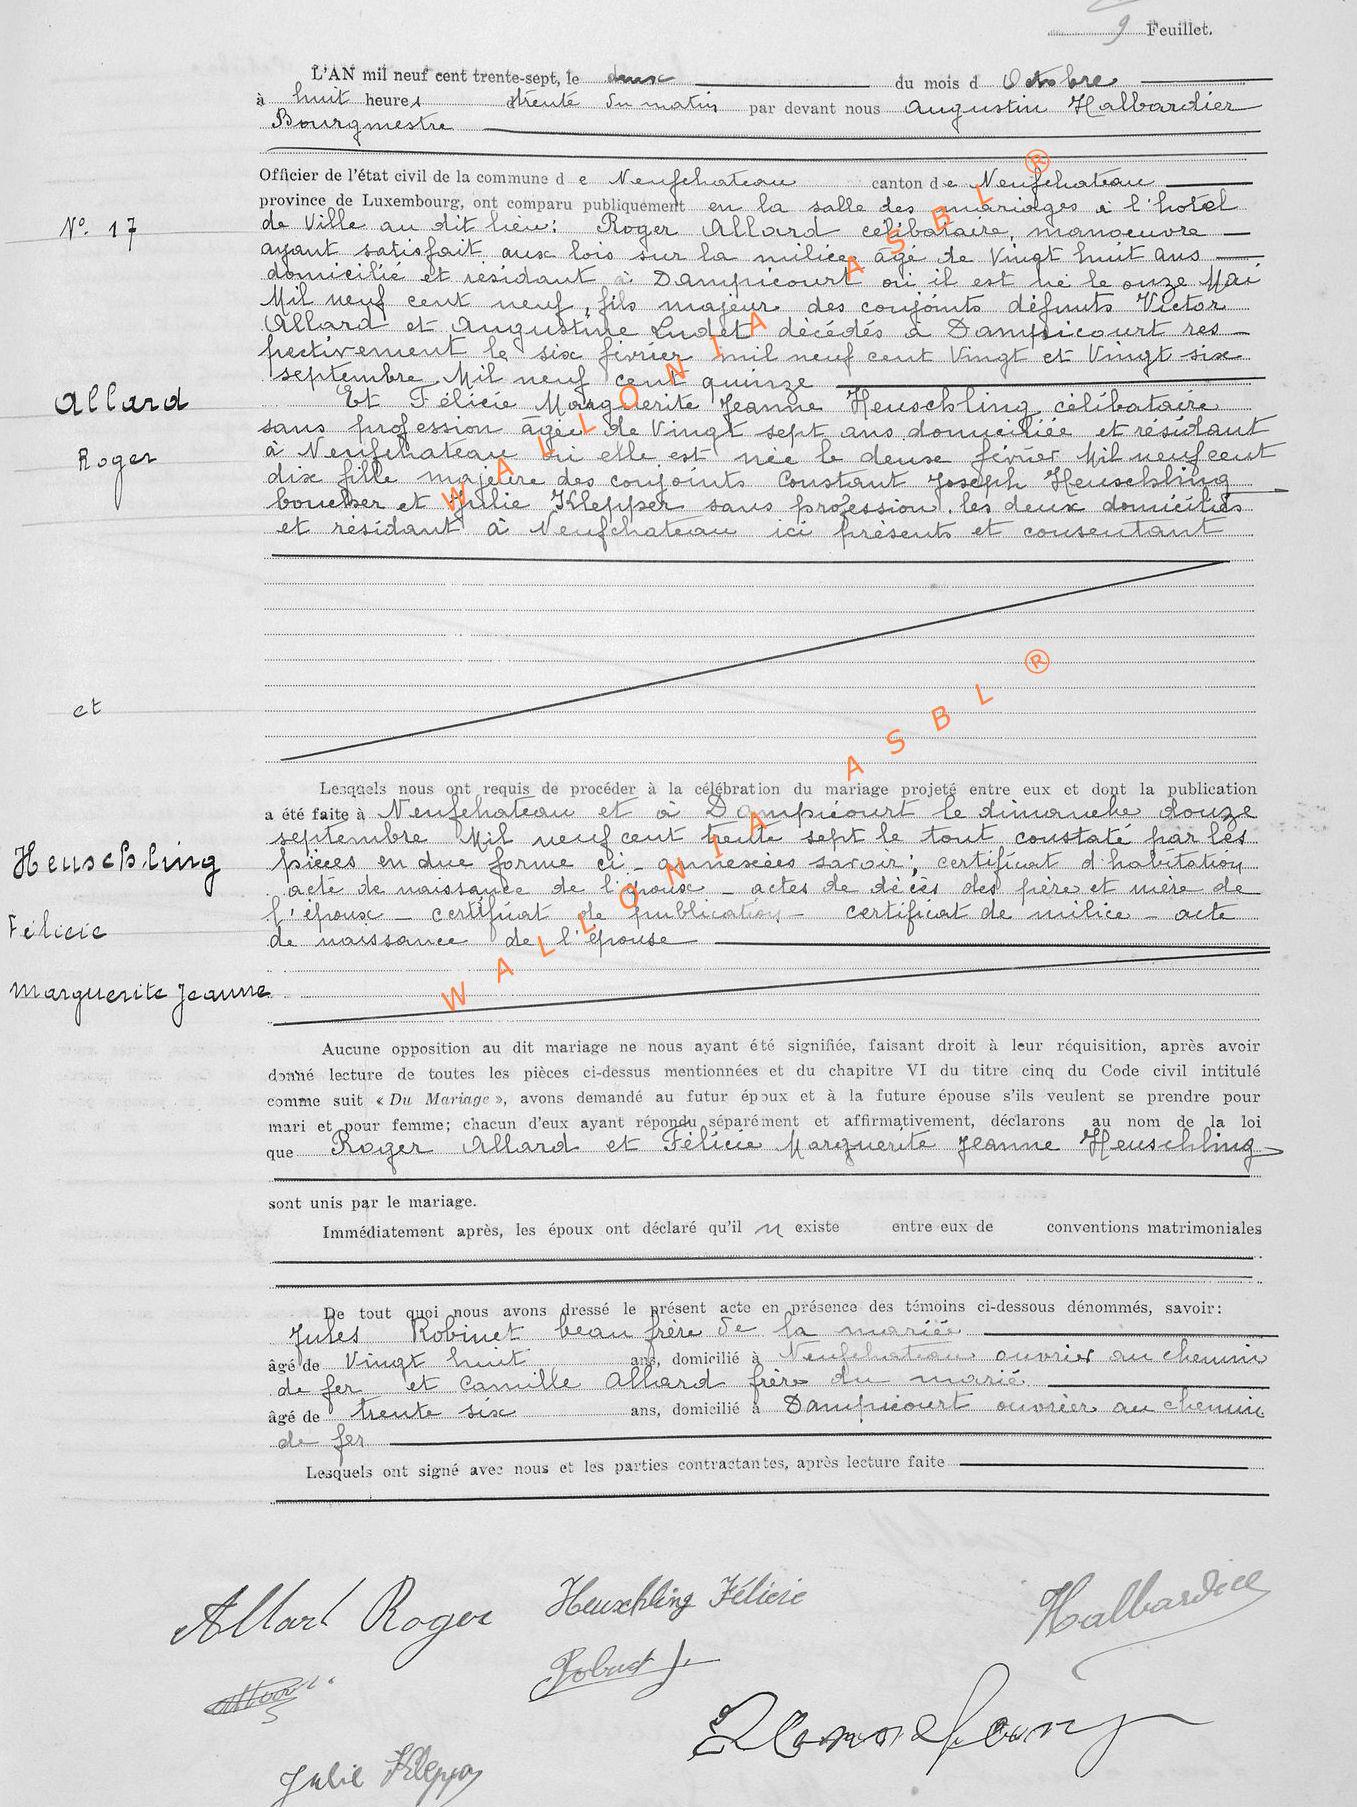 9 Feuillet.
L'AN mil neuf cent trente-sept, le deux du mois d Octobre
à huit heures trente du matin par devant nous Augustin Halbardier
Bourgmestre
Officier de l'état civil de la commune d e Neufchateau canton d e Neufchateau
province de Luxembourg, ont comparu publiquement en la salle des mariages à l'hotel
N° 17
de Ville au dit lieu: Roger Allard célibataire, manoeuvre
ayant satisfait aux lois sur la milice âgé de Vingt huit ans
domicilié et résidant à Dampicourt où il est né le onze Mai
Mil neuf cent neuf, fils majeur des conjoints défunts Victor
Allard et Augustine Ludet décédés à Dampicourt res-
pectivement le six février mil neuf cent Vingt et Vingt six
septembre Mil neuf cent quinze
Allard
Roger
Et Félicie Marguerite Jeanne Heuschling célibataire
sans profession âgée de Vingt sept ans domiciliée et résidant
à Neufchateau où elle est née le deux février Mil neuf cent
dix fille majeure des conjoints Constant Joseph Heuschling
boucher et Julie Klepper sans profession. les deux domiciliés
et résidant à Neufchateau ici présents et consentant
et
Lesquels nous ont requis de procéder à la célébration du mariage projeté entre eux et dont la publication
a été faite à Neufchateau et à Dampicourt le dimanche douze
septembre Mil neuf cent trente sept le tout constaté par les
pièces en due forme ci-annexées savoir; certificat d'habitation
acte de naissance de l'époux - actes de décès des père et mère de
l'époux - certificat de publication - certificat de milice - acte
de naissance de l'épouse
Heuschling
Félicie
Marguerite Jeanne
Aucune opposition au dit mariage ne nous ayant été signifiée, faisant droit à leur réquisition, après avoir
donné lecture de toutes les pièces ci-dessus mentionnées et du chapitre VI du titre cinq du Code civil intitulé
comme suit « Du Mariage », avons demandé au futur époux et à la future épouse s'ils veulent se prendre pour
mari et pour femme; chacun d'eux ayant répondu séparément et affirmativement, déclarons au nom de la loi
que Roger Allard et Félicie Marguerite Jeanne Heuschling
sont unis par le mariage.
Immédiatement après, les époux ont déclaré qu'il n existe entre eux de conventions matrimoniales
De tout quoi nous avons dressé le présent acte en présence des témoins ci-dessous dénommés, savoir:
Jules Robinet beau frère de la mariée
âgé de Vingt huit ans, domicilié à Neufchateau ouvrier au chemin
de fer et Camille Allard frère du marié
âgé de trente six ans, domicilié à Dampicourt ouvrier au chemin
de fer
Lesquels ont signé avec nous et les parties contractantes, après lecture faite
Allard Roger Heuschling Félicie Halbardier
Robinet J.
Julie Klepper
WALLONIA ASBL ®
WALLONIA ASBL ®